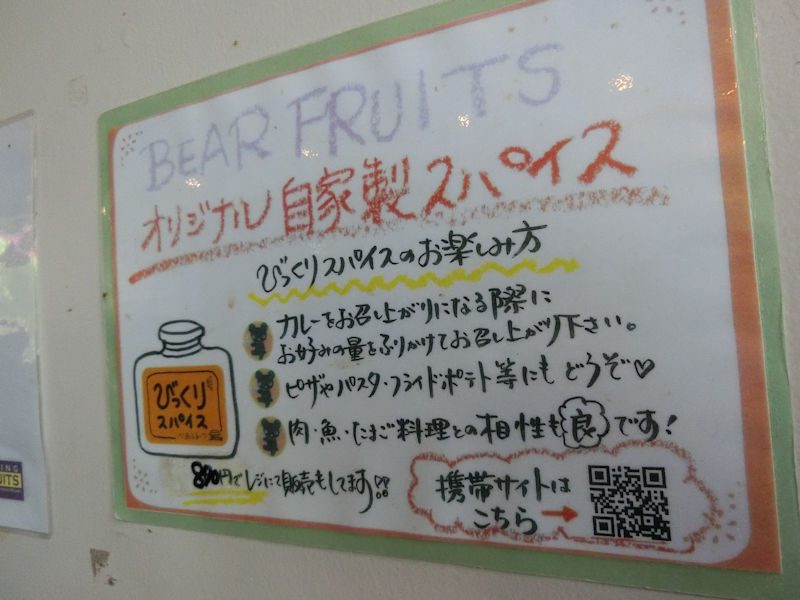 BEAR FRUITS
オリジナル自家製スパイス
びっくりスパイスのお楽しみ方
カレーをお召し上がりになる際に
お好みの量をふりかけてお召し上がり下さい。
ピザやパスタ・フライドポテト等にもどうぞ♡
肉・魚・たまご料理との相性も良です!
びっくり
スパイス
円でレジにて販売もしてます!!
携帯サイトは
こちら→
ING
UITS